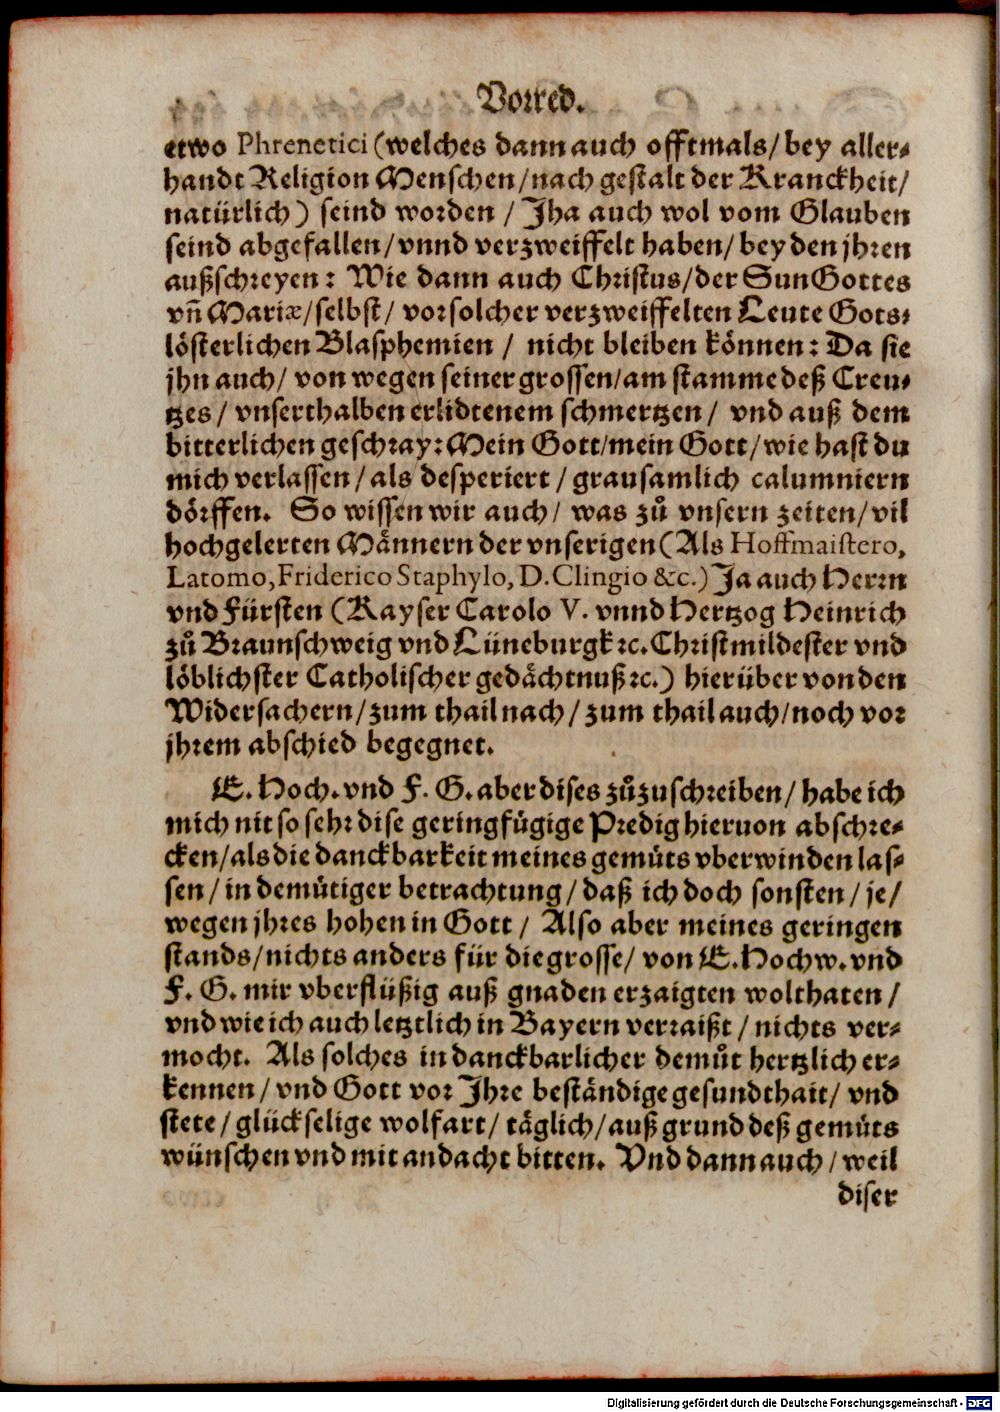 Vorred.
etwo Phrenetici (welches dann auch offtmals/ bey aller-
handt Religion Menschen/ nach gestalt der Kranckheit/
natürlich) seind worden / Jha auch wol vom Glauben
seind abgefallen/ vnnd verzweiffelt haben/ bey den jhren
außschreyen: Wie dann auch Christus/ der Sun Gottes
vñ Mariæ/ selbst/ vor solcher verzweiffelten Leute Gots-
lösterlichen Blasphemien / nicht bleiben können: Da sie
jhn auch/ von wegen seiner grossen/ am stamme deß Creu-
tzes/ vnserthalben erlidtenem schmertzen/ vnd auß dem
bitterlichen geschray: Mein Gott/ mein Gott/ wie hast du
mich verlassen/ als desperiert/ grausamlich calumniern
dörffen. So wissen wir auch/ was zů vnsern zeiten/ vil
hochgelerten Männern der vnserigen (Als Hoffmaistero,
Latomo, Friderico Staphylo, D. Clingio &c.) Ja auch Herrn
vnd Fürsten (Kayser Carolo V. vnnd Hertzog Heinrich
zů Braunschweig vnd Lüneburgk ꝛc. Christmildester vnd
löblichster Catholischer gedächtnuß ꝛc.) hierüber von den
Widersachern/ zum thail nach/ zum thail auch/ noch vor
jhrem abschied begegnet.
E. Hoch. vnd F. G. aber dises zůzuschreiben/ habe ich
mich nit so sehr dise geringfügige Predig hieruon abschre-
cken/ als die danckbarkeit meines gemüts vberwinden las-
sen/ in demütiger betrachtung/ daß ich doch sonsten/ je/
wegen jhres hohen in Gott/ Also aber meines geringen
stands/ nichts anders für die grosse/ von E. Hochw. vnd
F. G. mir vberflüßig auß gnaden erzaigten wolthaten/
vnd wie ich auch letztlich in Bayern verraißt/ nichts ver-
mocht. Als solches in danckbarlicher demůt hertzlich er-
kennen/ vnd Gott vor Jhre beständige gesundthait/ vnd
stete/ glückselige wolfart/ täglich/ auß grund deß gemüts
wünschen vnd mit andacht bitten. Vnd dann auch/ weil
diser
Digitalisierung gefördert durch die Deutsche Forschungsgemeinschaft - DFG